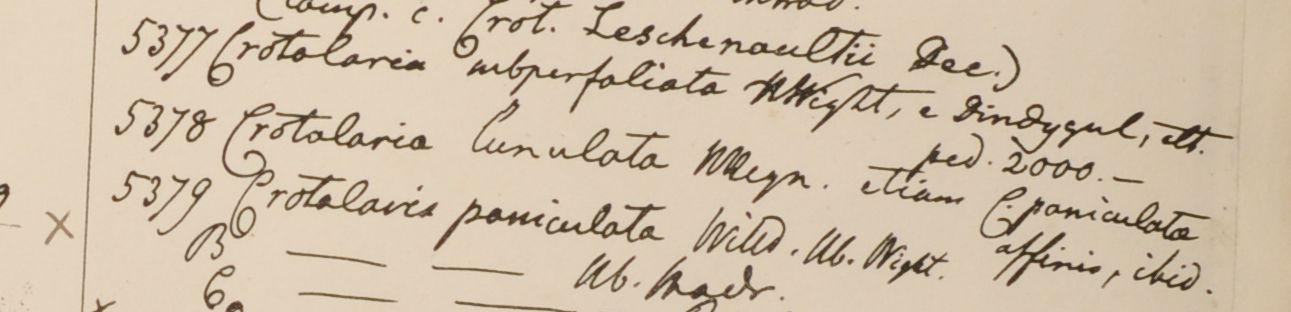 (Comp. c. Crot. Leschenaultii Dec.)
5377 Crotalaria subperfoliata Wight, e Dindygul, alt.
ped. 2000.—
5378 Crotalaria lunulata Heyn. etiam C. paniculata
affinis, ibid.
5379 Crotalaria paniculata Willd. Hb. Wight.
B — — Hb. Madr.
C — —